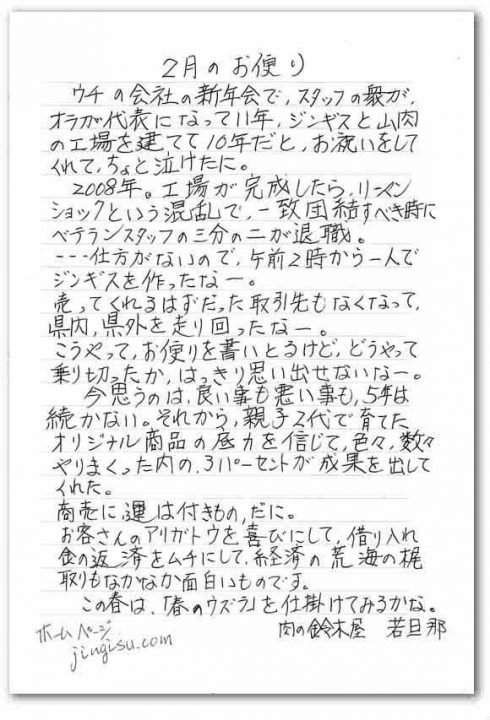 2月のお便り
ウチの会社の新年会で、スタッフの衆が、
オラが代表になって11年、ジンギスと山肉
の工場を建てて10年だと、お祝いをして
くれて、ちょと泣けたに。
2008年。工場が完成したら、リーマン
ショックという混乱で、一致団結すべき時に
ベテランスタッフの三分の二が退職。
---仕方がないので、午前2時から一人で
ジンギスを作ったなー。
売ってくれるはずだった取引先もなくなって、
県内、県外を走り回ったなー。
こうやって、お便りを書いとるけど、どうやって
乗り切ったか、はっきり思い出せないなー。
今思うのは、良い事も悪い事も、5年は
続かない。それから、親子2代で育てた
オリジナル商品の底力を信じて、色々、数々
やりまくった内の、3パーセントが成果を出して
くれた。
商売に運は付きもの、だに。
お客さんのアリガトウを喜びにして、借り入れ
金の返済をムチにして、経済の荒海の梶
取りもなかなか面白いものです。
この春は、「春のウズラ」を仕掛けてみるかな。
肉の鈴木屋 若旦那
ホームページ
jingisu.com